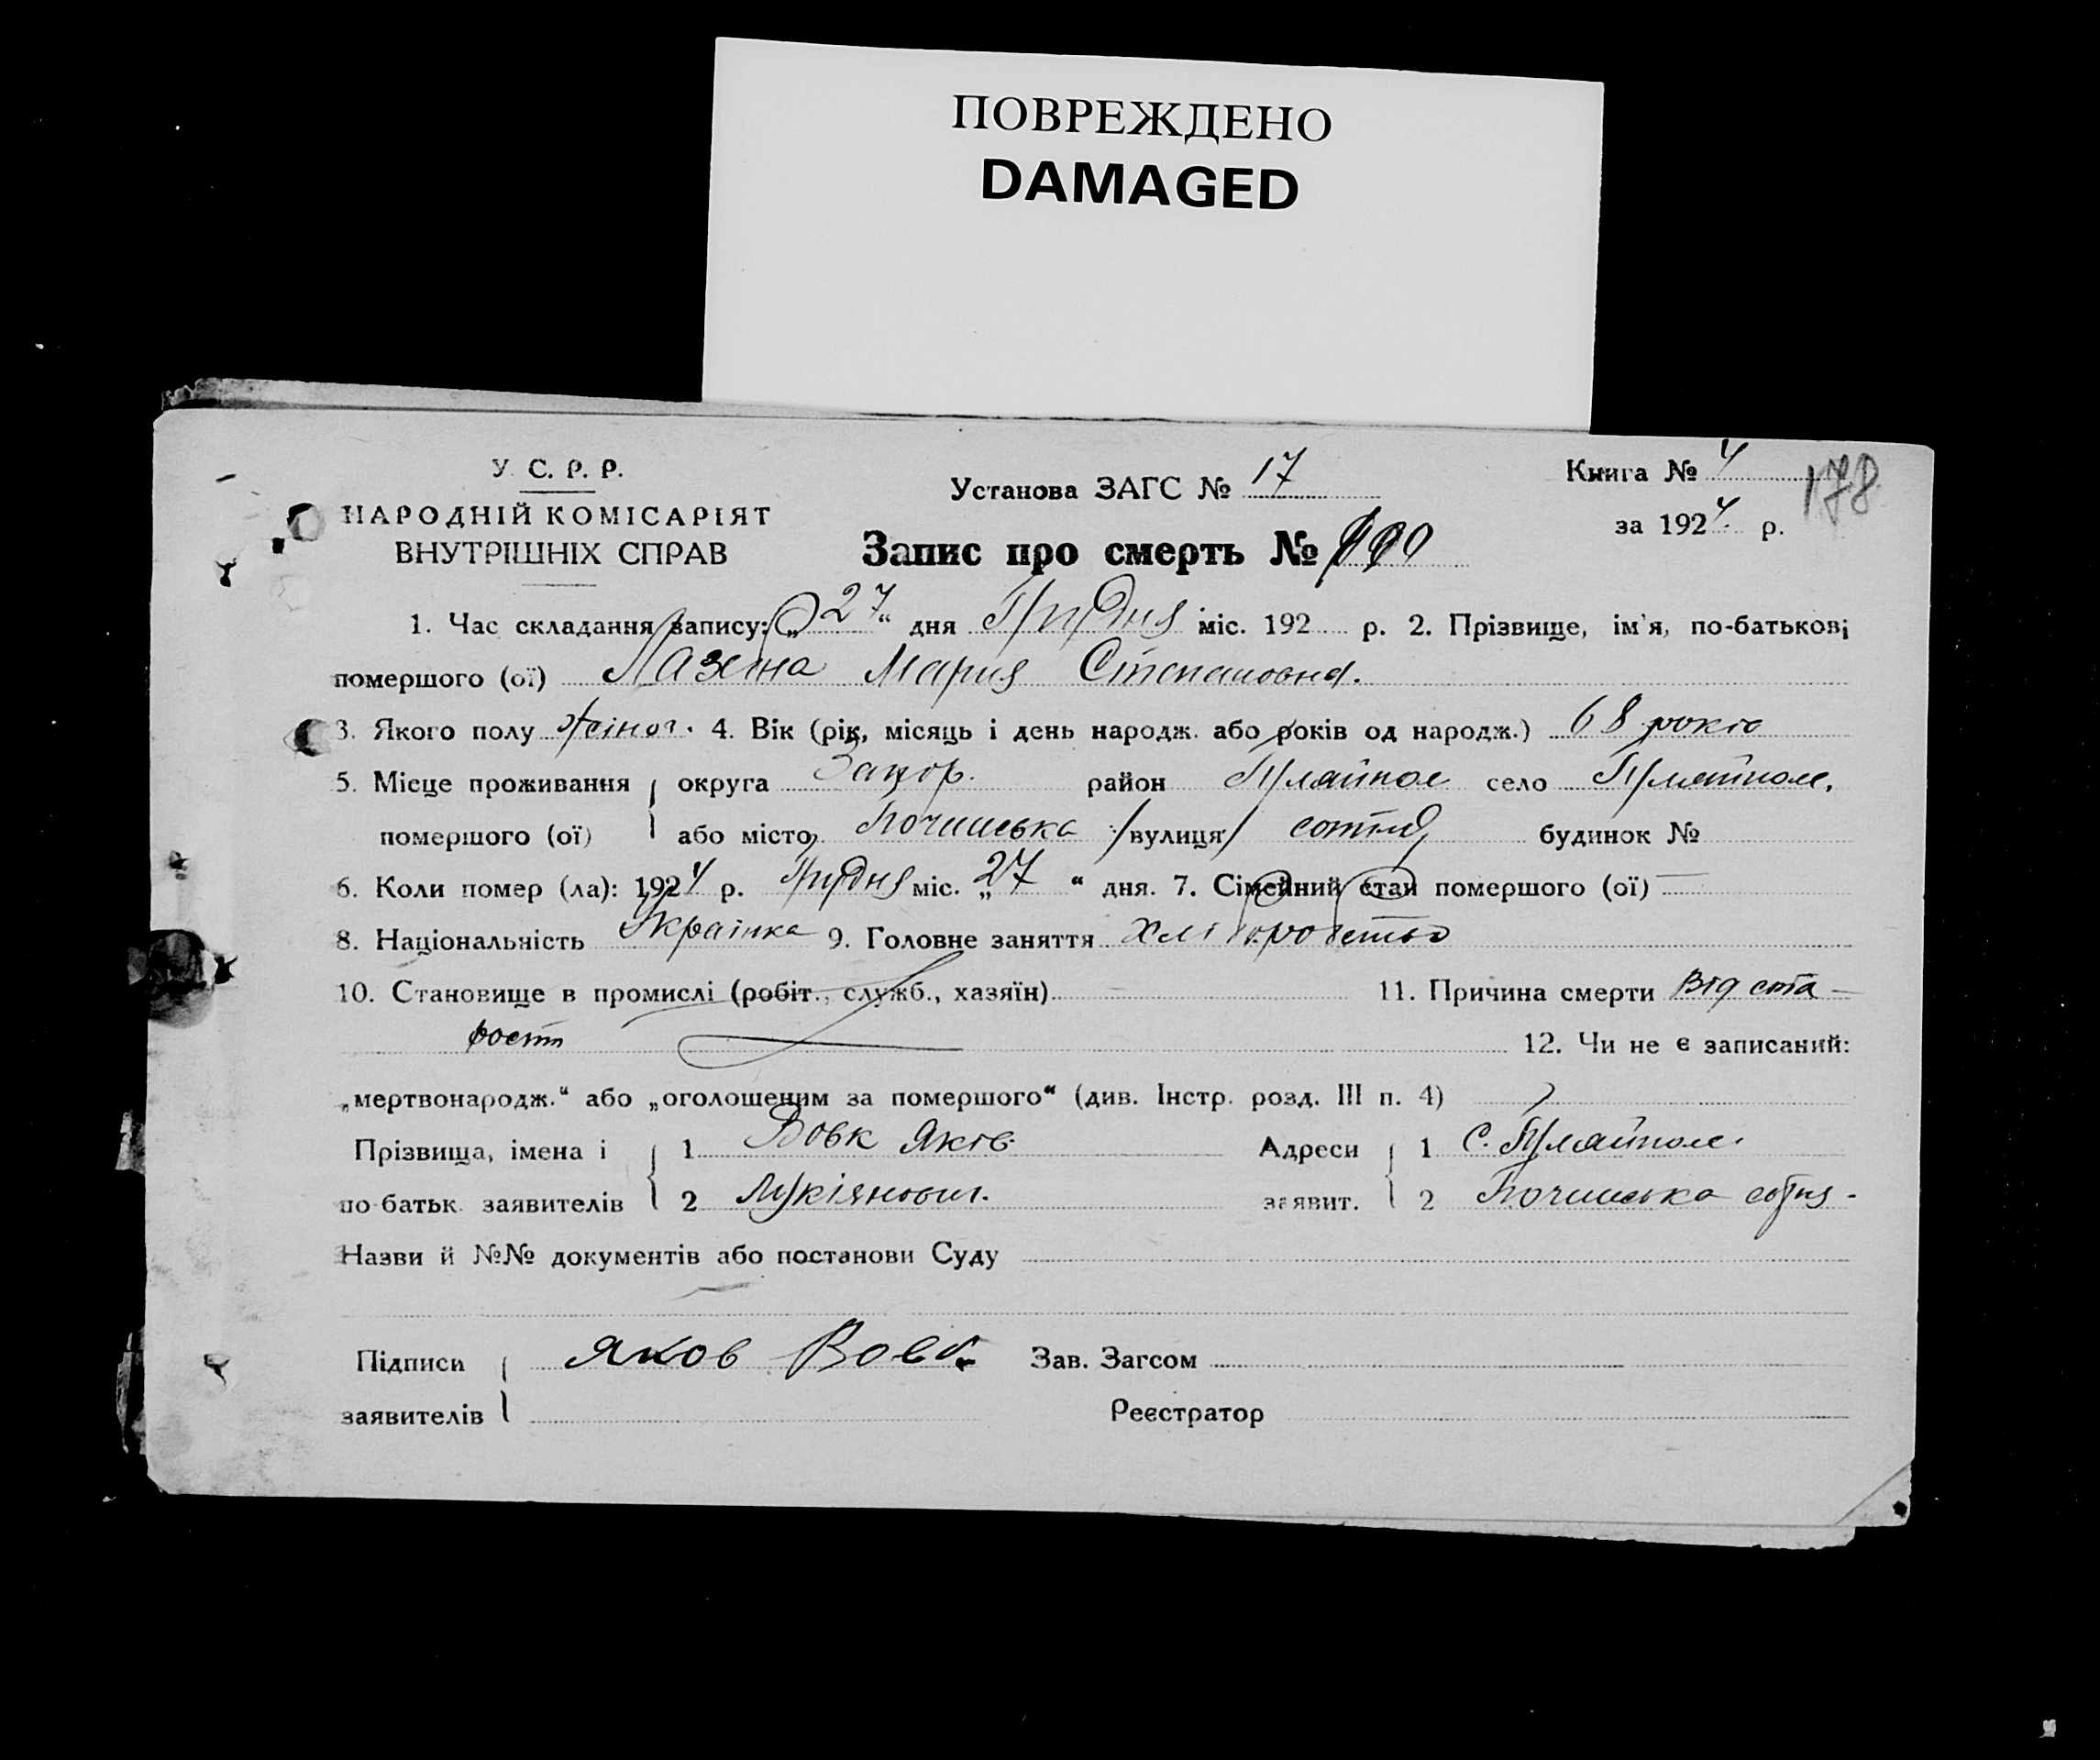 ПОВРЕЖДЕНО
DAMAGED
У. С. Р. Р.
НАРОДНІЙ КОМІСАРІЯТ
ВНУТРІШНІХ СПРАВ
Установа ЗАГС № 17
Книга № 4
178
за 1924 р.
Запис про смерть №
1. Час складання запису: „27“ дня Грудня міс. 192 р. 2. Прізвище, ім'я, по-батькові
помершого (ої) Мария Степановна.
3. Якого полу жіноч. 4. Вік (рік, місяць і день народж. або років од народж.) 68 років
5. Місце проживання округа Запор. район Гуляйпол село Гуляйполе.
помершого (ої) або місто вулиця сотня будинок №
6. Коли помер (ла): 1924 р. Грудня міс. „27“ дня. 7. Сімейний стан помершого (ої) —
8. Національність Українка 9. Головне заняття Хліборобство
10. Становище в промислі (робіт., служб., хазяїн) — 11. Причина смерти Від ста-
рости
12. Чи не є записаний:
„мертвонародж.“ або „оголошеним за помершого“ (див. Інстр. розд. III п. 4)
Прізвища, імена і 1 Вовк Яків Адреси 1 С. Гуляйполе.
по-батьк. заявителів 2 Лукіянович. заявит. 2 сотня -
Назви й №№ документів або постанови Суду
Підписи Яков Вовк Зав. Загсом
заявителів Реєстратор